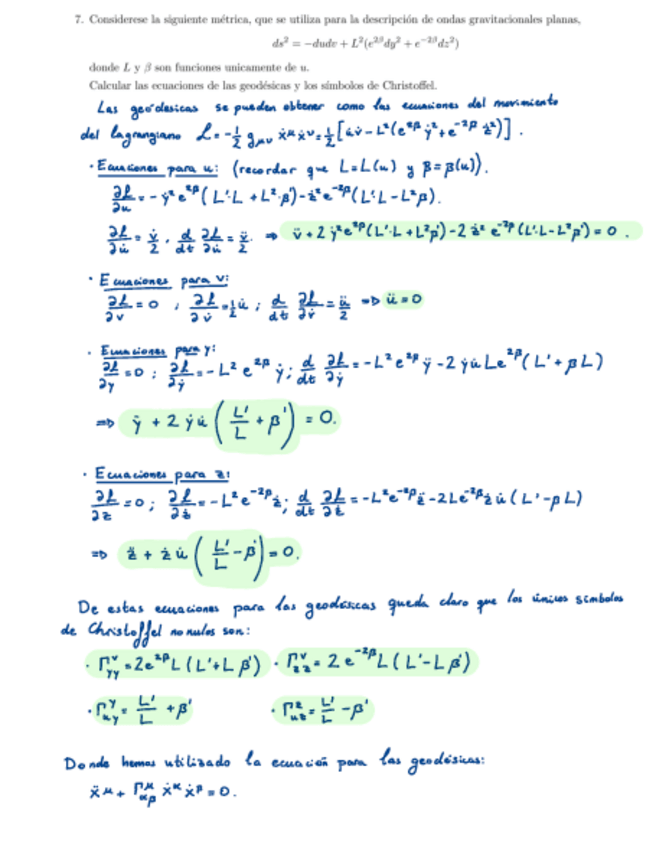 7. Considerese la siguiente métrica, que se utiliza para la descripción de ondas gravitacionales planas,
ds² = −dudv + L²(e^{2β}dy² + e^{−2β}dz²)
donde L y β son funciones unicamente de u.
Calcular las ecuaciones de las geodésicas y los símbolos de Christoffel.
Las geodésicas se pueden obtener como las ecuaciones del movimiento
del lagrangiano ℒ = -½ g_{μν} ẋ^μ ẋ^ν = ½[u̇v̇ - L²(e^{2β} ẏ² + e^{-2β} ż²)].
· Ecuaciones para u: (recordar que L=L(u) y β=β(u)).
∂ℒ/∂u = -ẏ² e^{2β}(L'L + L²β') - ż² e^{-2β}(L'L - L²β).
∂ℒ/∂u̇ = v̇/2, d/dt ∂ℒ/∂u̇ = v̈/2. ⇒ v̈ + 2ẏ² e^{2β}(L'L + L²β') - 2ż² e^{-2β}(L'L - L²β') = 0.
· Ecuaciones para v:
∂ℒ/∂v = 0 ; ∂ℒ/∂v̇ = ½u̇ ; d/dt ∂ℒ/∂v̇ = ü/2 ⇒ ü = 0
· Ecuaciones para y:
∂ℒ/∂y = 0 ; ∂ℒ/∂ẏ = -L² e^{2β} ẏ; d/dt ∂ℒ/∂ẏ = -L² e^{2β} ÿ - 2ẏu̇ L e^{2β}(L' + βL)
⇒ ÿ + 2ẏu̇ (L'/L + β') = 0.
· Ecuaciones para z:
∂ℒ/∂z = 0; ∂ℒ/∂ż = -L² e^{-2β} ż; d/dt ∂ℒ/∂ż = -L² e^{-2β} z̈ - 2L e^{-2β} żu̇ (L' - βL)
⇒ z̈ + żu̇ (L'/L - β') = 0.
De estas ecuaciones para las geodésicas queda claro que los únicos símbolos
de Christoffel no nulos son:
· Γ^v_{yy} = 2e^{2β} L(L' + Lβ') · Γ^v_{zz} = 2e^{-2β} L(L' - Lβ')
· Γ^y_{uy} = L'/L + β' · Γ^z_{uz} = L'/L - β'
Donde hemos utilizado la ecuación para las geodésicas:
ẍ^μ + Γ^μ_{αβ} ẋ^α ẋ^β = 0.